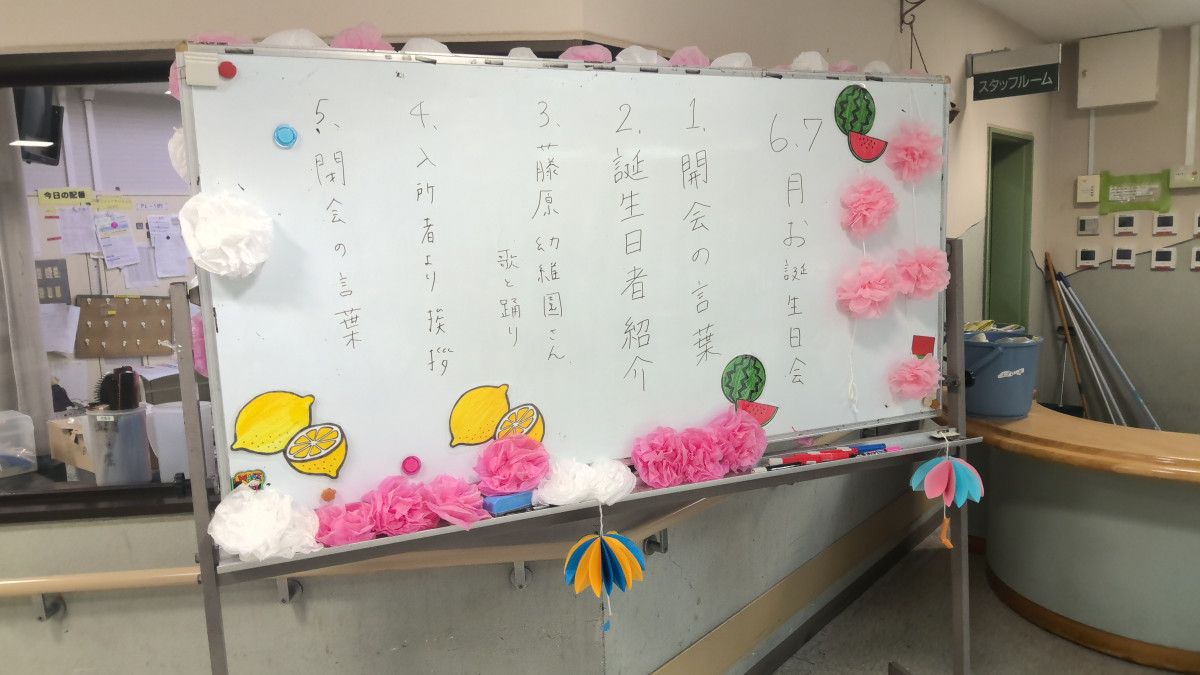 6、7月お誕生日会
1、開会の言葉
2、誕生日者紹介
3、藤原幼稚園さん
歌と踊り
4、入所者より挨拶
5、閉会の言葉
スタッフルーム
今日の配番